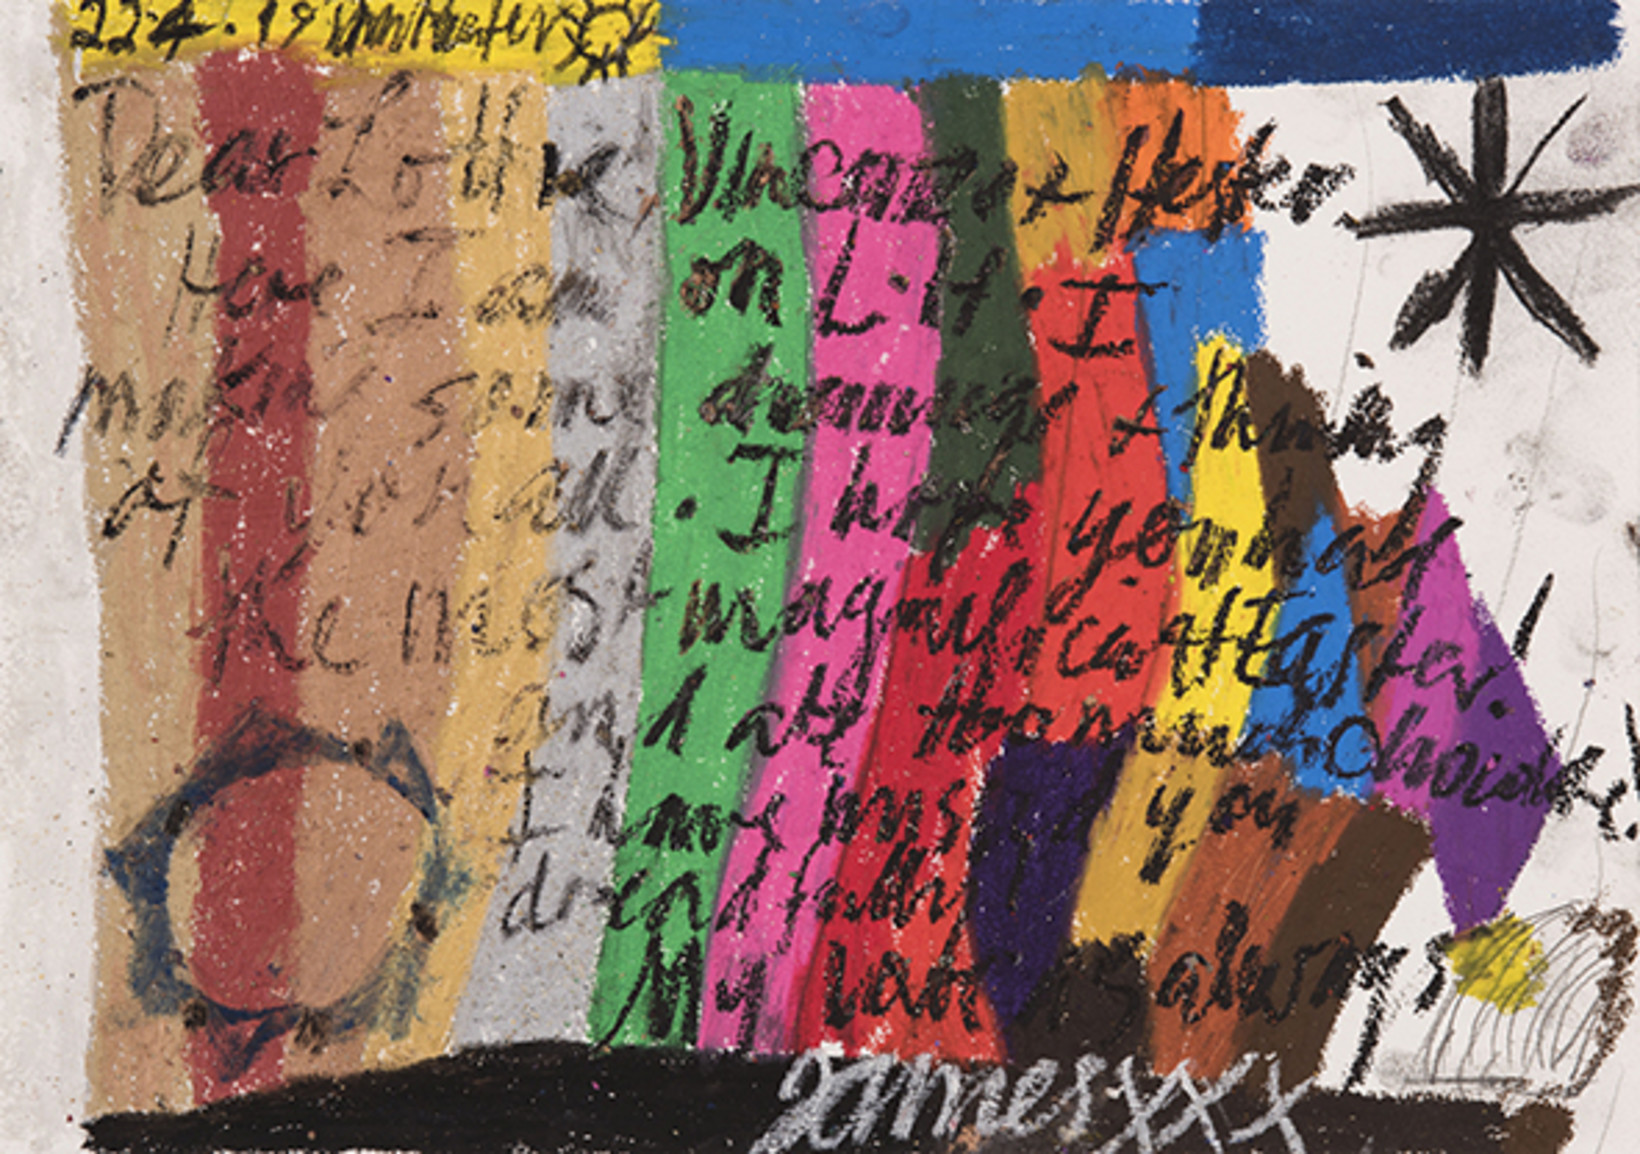 22.4.19
Dear Lottie, Vincenzo x Hester
Here I am on L.H. I
making some drawings x thinking
of you all. I hope you had
the most magnificent Easter!
and ate too much Chocolate!
I know I miss you
dreadfully
My Love as always
James xxx